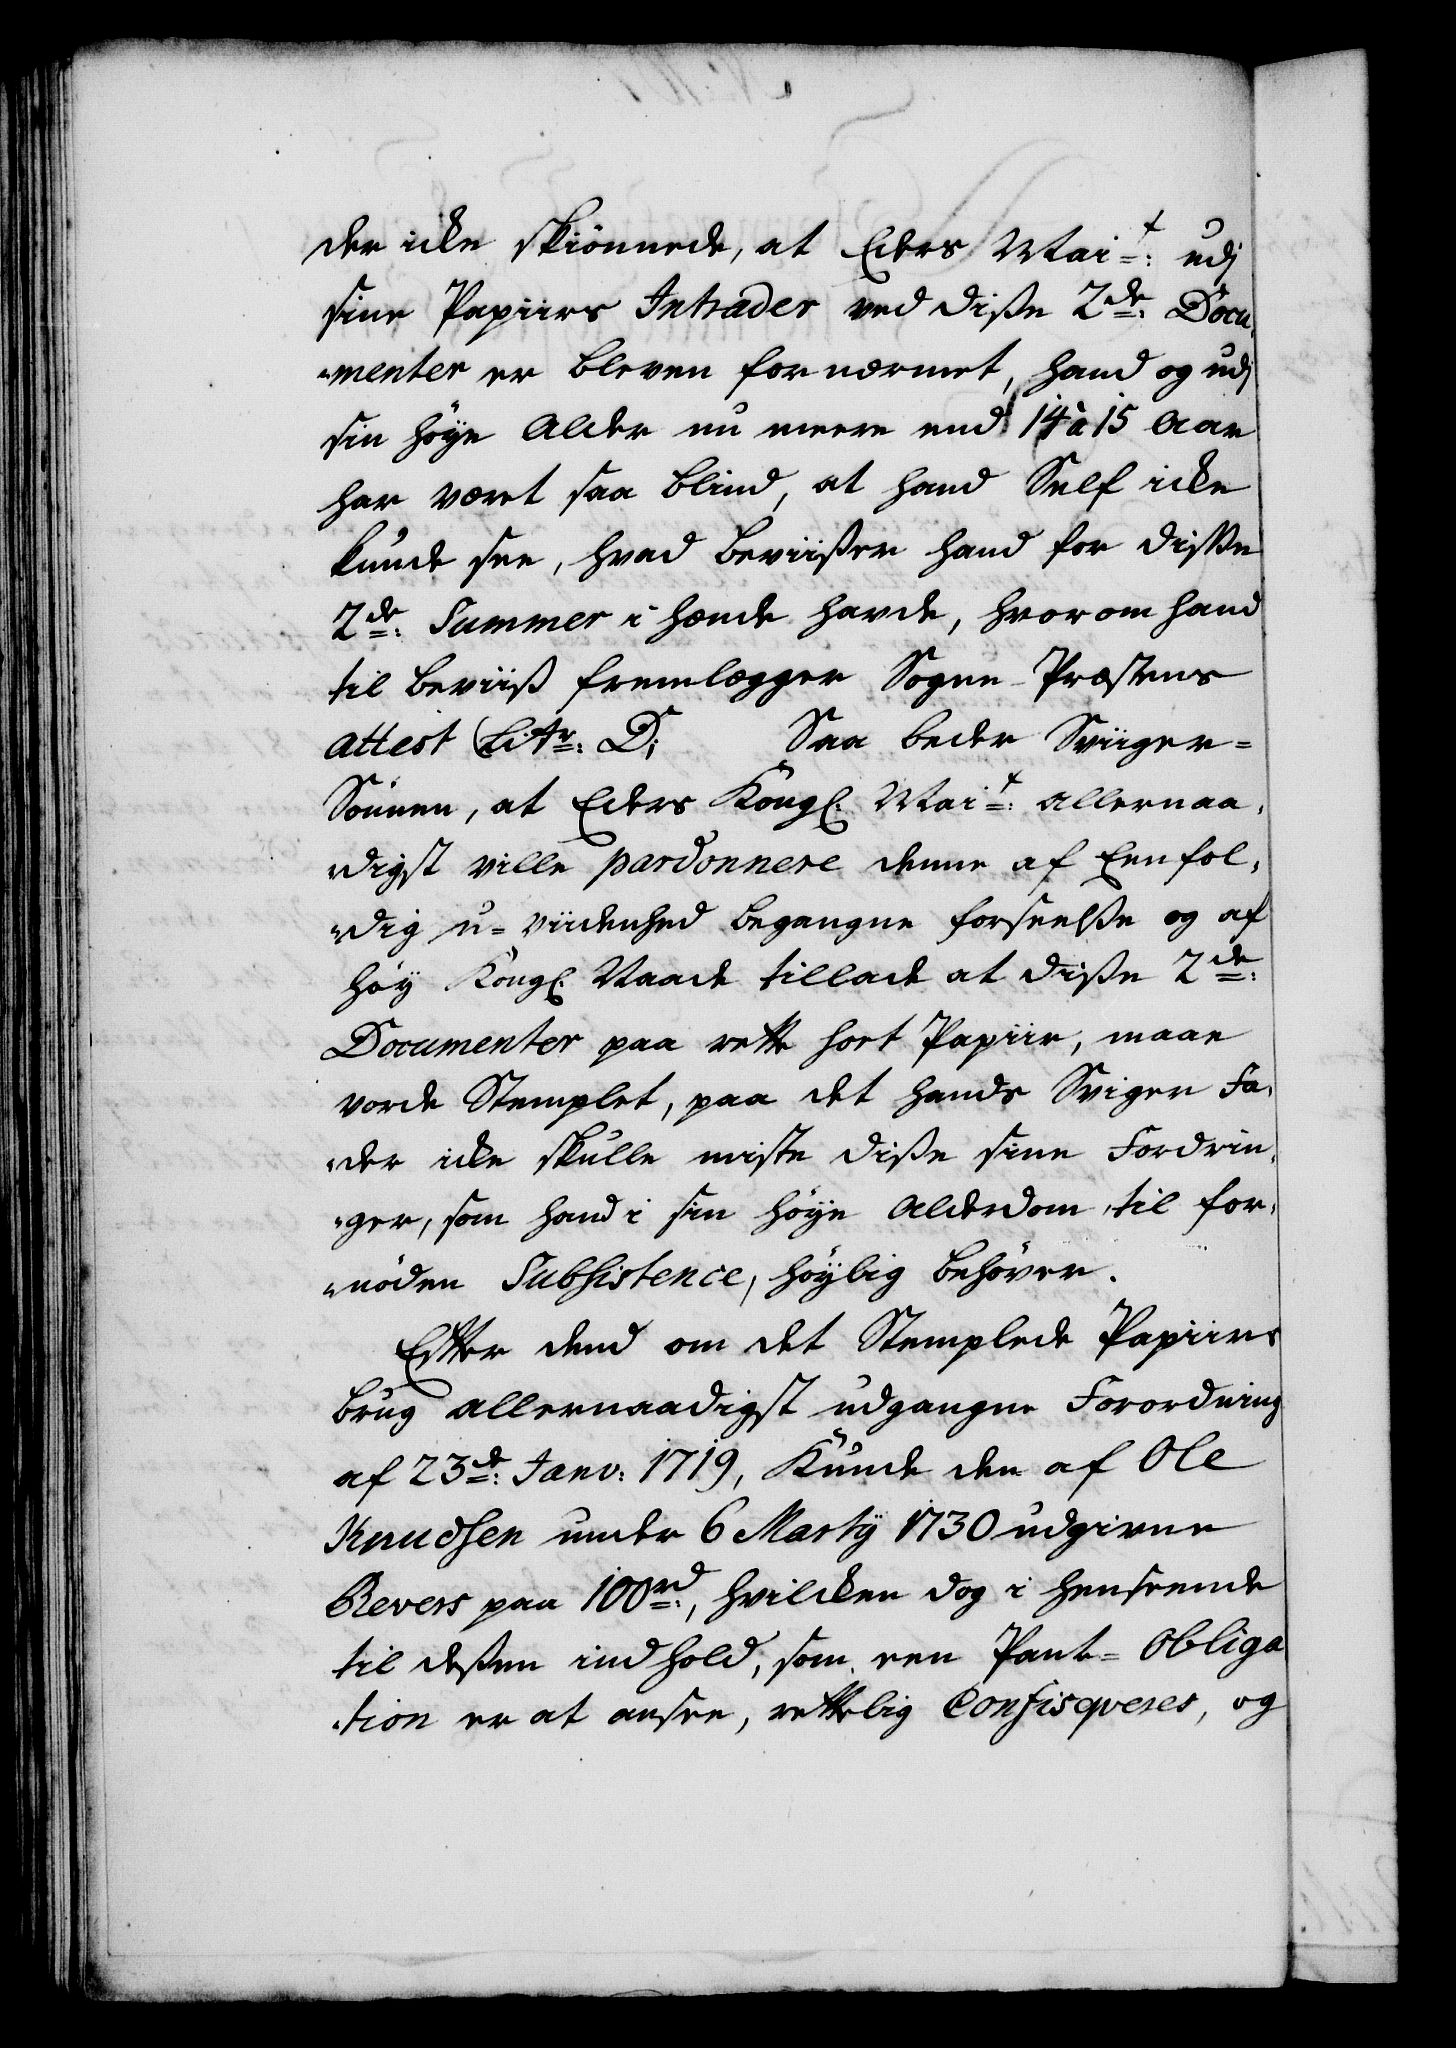 der icke skiönnede, at Eders Mai:t udj
sine Papiirs Intrader ved diße 2de: Docu,
"menter er bleven fornærmet, hand og udj
sin höye Alder nu meere end 14 à 15 Aar
har været saa blind, at hand Self icke
kunde see, hvad beviißer hand for disse
2de: Summer i hænde havde, hvorom hand
til beviiß fremlægger Sogne-Præstens
attest Litr: D; Saa beder Sviiger=
Sönnen, at Eders Kongl: Mai:t allernaa,
"digst ville pardonnere denne af Eenfol,
"dig u=viidenhed begangne forseelße og af
höy Kongl: Naade tillade at diße 2de:
Documenter paa rette sort Papiir, maae
vorde Stemplet, paa det hands Sviger Fa,
"der icke skulle miste diße sine Fordrin,
"ger, som hand i sin höye Alderdom til for,
"nöden Subsistence, höylig behöver.
Efter dend om det Stemplede Papiirs
brug allernaadigst udgangne Forordning
af 23de: Janv: 1719, Kunde den af Ole
Knudsen under 6 Martÿ 1730 udgivne
Revers paa 100rd:, hvilcken dog i henseende
til deßen indhold, som een Pant=Obliga
"tion er at ansee, rettelig Confisqveres, og